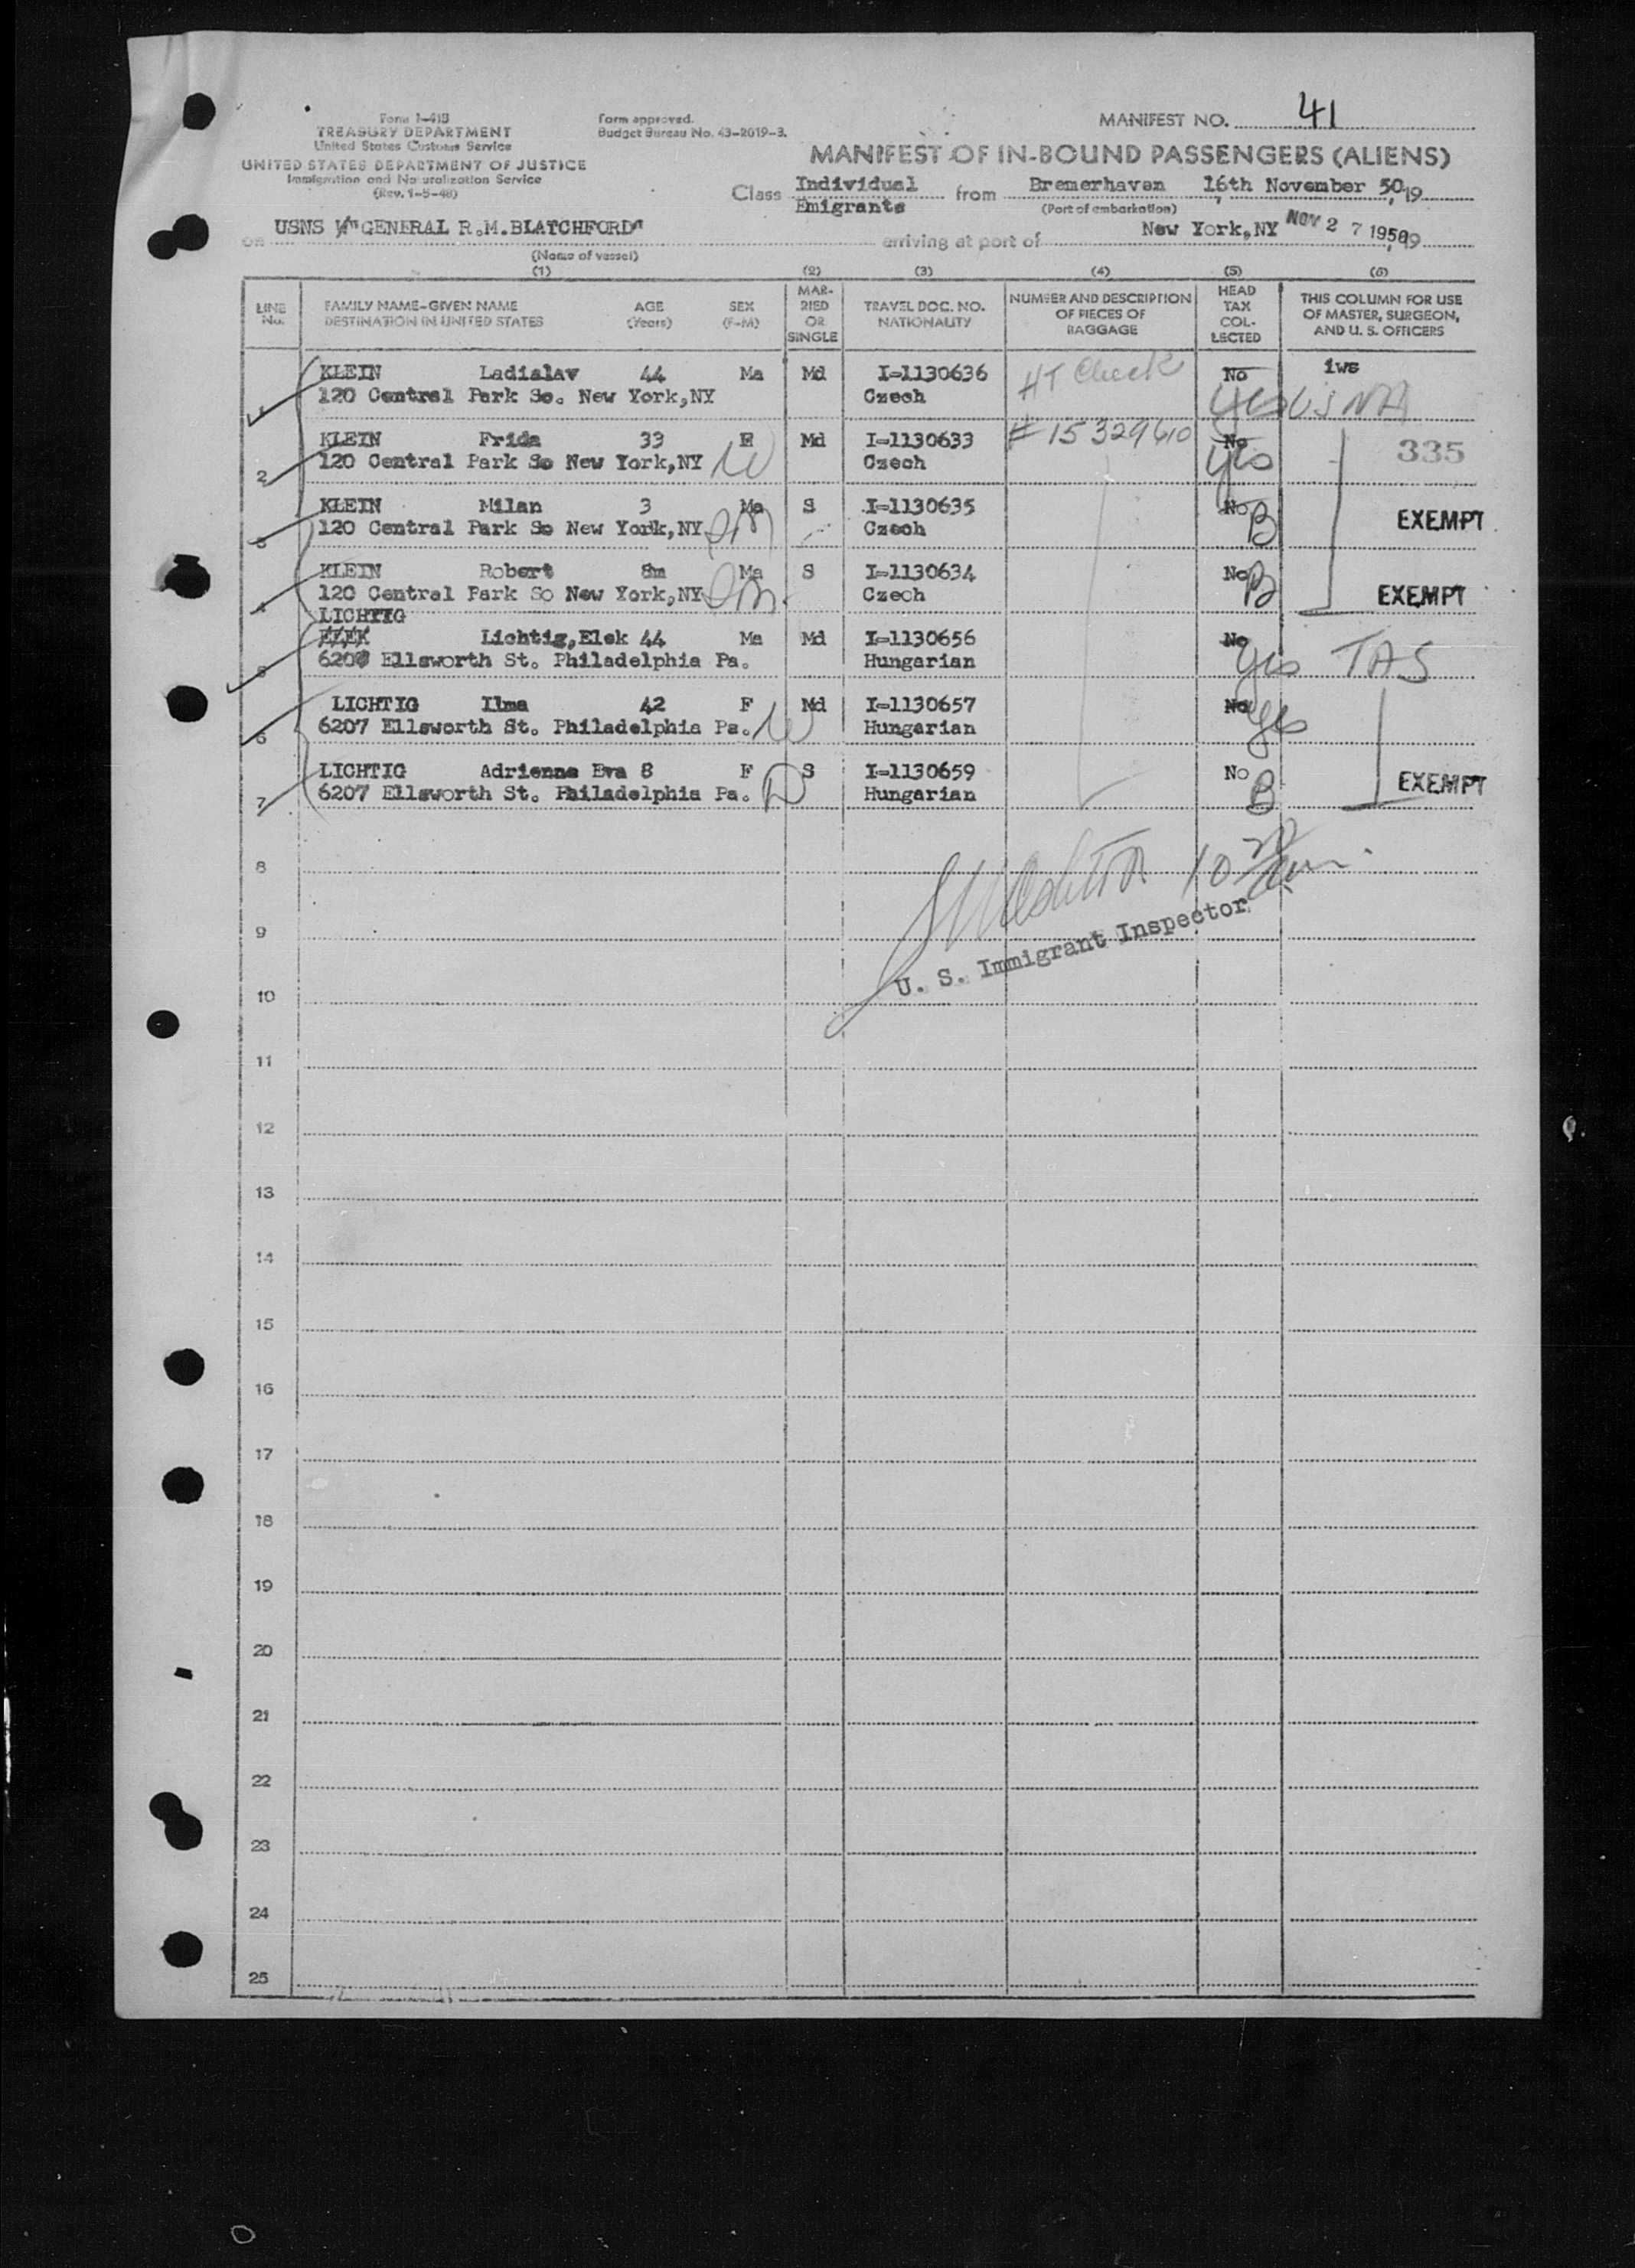 Form I-415
TREASURY DEPARTMENT
United States Customs Service
UNITED STATES DEPARTMENT OF JUSTICE
Immigration and Naturalization Service
(Rev. 1-5-48)
Form approved.
Budget Bureau No. 43-2019-3.
MANIFEST NO. 41
MANIFEST OF IN-BOUND PASSENGERS (ALIENS)
Class Individual Emigrants from Bremerhaven 16th November 50, 19
(Port of embarkation)
on USNS "GENERAL R.M.BLATCHFORD" arriving at port of New York,NY NOV 27 1950, 19
(Name of vessel)
(1) (2) (3) (4) (5) (6)
LINE No. FAMILY NAME-GIVEN NAME DESTINATION IN UNITED STATES AGE (Years) SEX (F-M) MARRIED OR SINGLE TRAVEL DOC. NO. NATIONALITY NUMBER AND DESCRIPTION OF PIECES OF BAGGAGE HEAD TAX COLLECTED THIS COLUMN FOR USE OF MASTER, SURGEON, AND U. S. OFFICERS
1 KLEIN Ladislav 44 Ma Md I-1130636 HT Check No iws
120 Central Park So. New York,NY Czech Yes USNA
2 KLEIN Frida 33 F Md I-1130633 #15329610 No 335
120 Central Park So New York,NY W Czech Yes
3 KLEIN Milan 3 Ma S I-1130635 No EXEMPT
120 Central Park So New York,NY Czech B
4 KLEIN Robert 8m Ma S I-1130634 No EXEMPT
120 Central Park So New York,NY Czech B
LICHTIG
5 ELEK Lichtig,Elek 44 Ma Md I-1130656 No
6207 Ellsworth St. Philadelphia Pa. Hungarian Yes TAS
6 LICHTIG Ilma 42 F Md I-1130657 No
6207 Ellsworth St. Philadelphia Pa. W Hungarian Yes
7 LICHTIG Adrienne Eva 8 F S I-1130659 No EXEMPT
6207 Ellsworth St. Philadelphia Pa. D Hungarian B
8
U. S. Immigrant Inspector
9
10
11
12
13
14
15
16
17
18
19
20
21
22
23
24
25